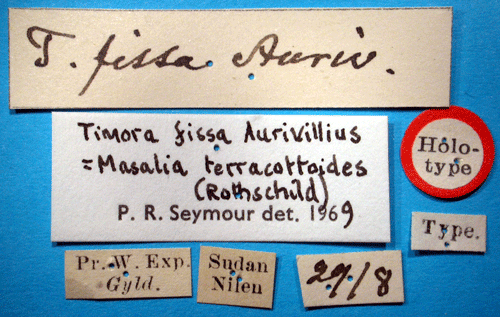 T. fissa Auriv.
Timora fissa Aurivillius
= Masalia terracottoides
(Rothschild)
P. R. Seymour det. 1969
Holo-
type
Type.
Pr. W. Exp.
Gyld.
Sudan
Nilen
29/8